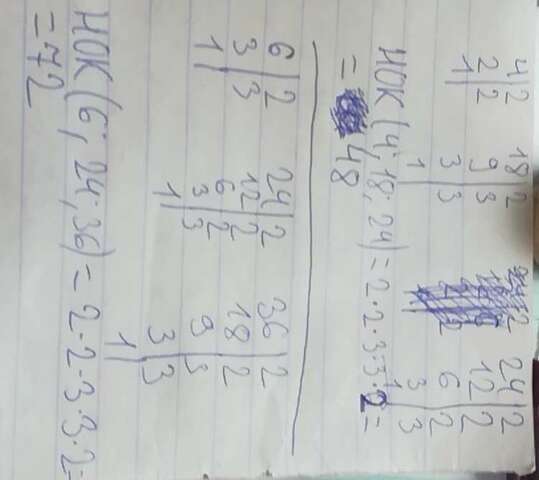 4|2 18|2 24|2
2|2 9|3 12|2
1| 3|3 6|2
1| 3|3
1|
НОК (4; 18; 24) = 2·2·3·3·2=
= 48
6|2 24|2 36|2
3|3 12|2 18|2
1| 6|2 9|3
3|3 3|3
1| 1|
НОК (6; 24; 36) = 2·2·3·3·2=
= 72